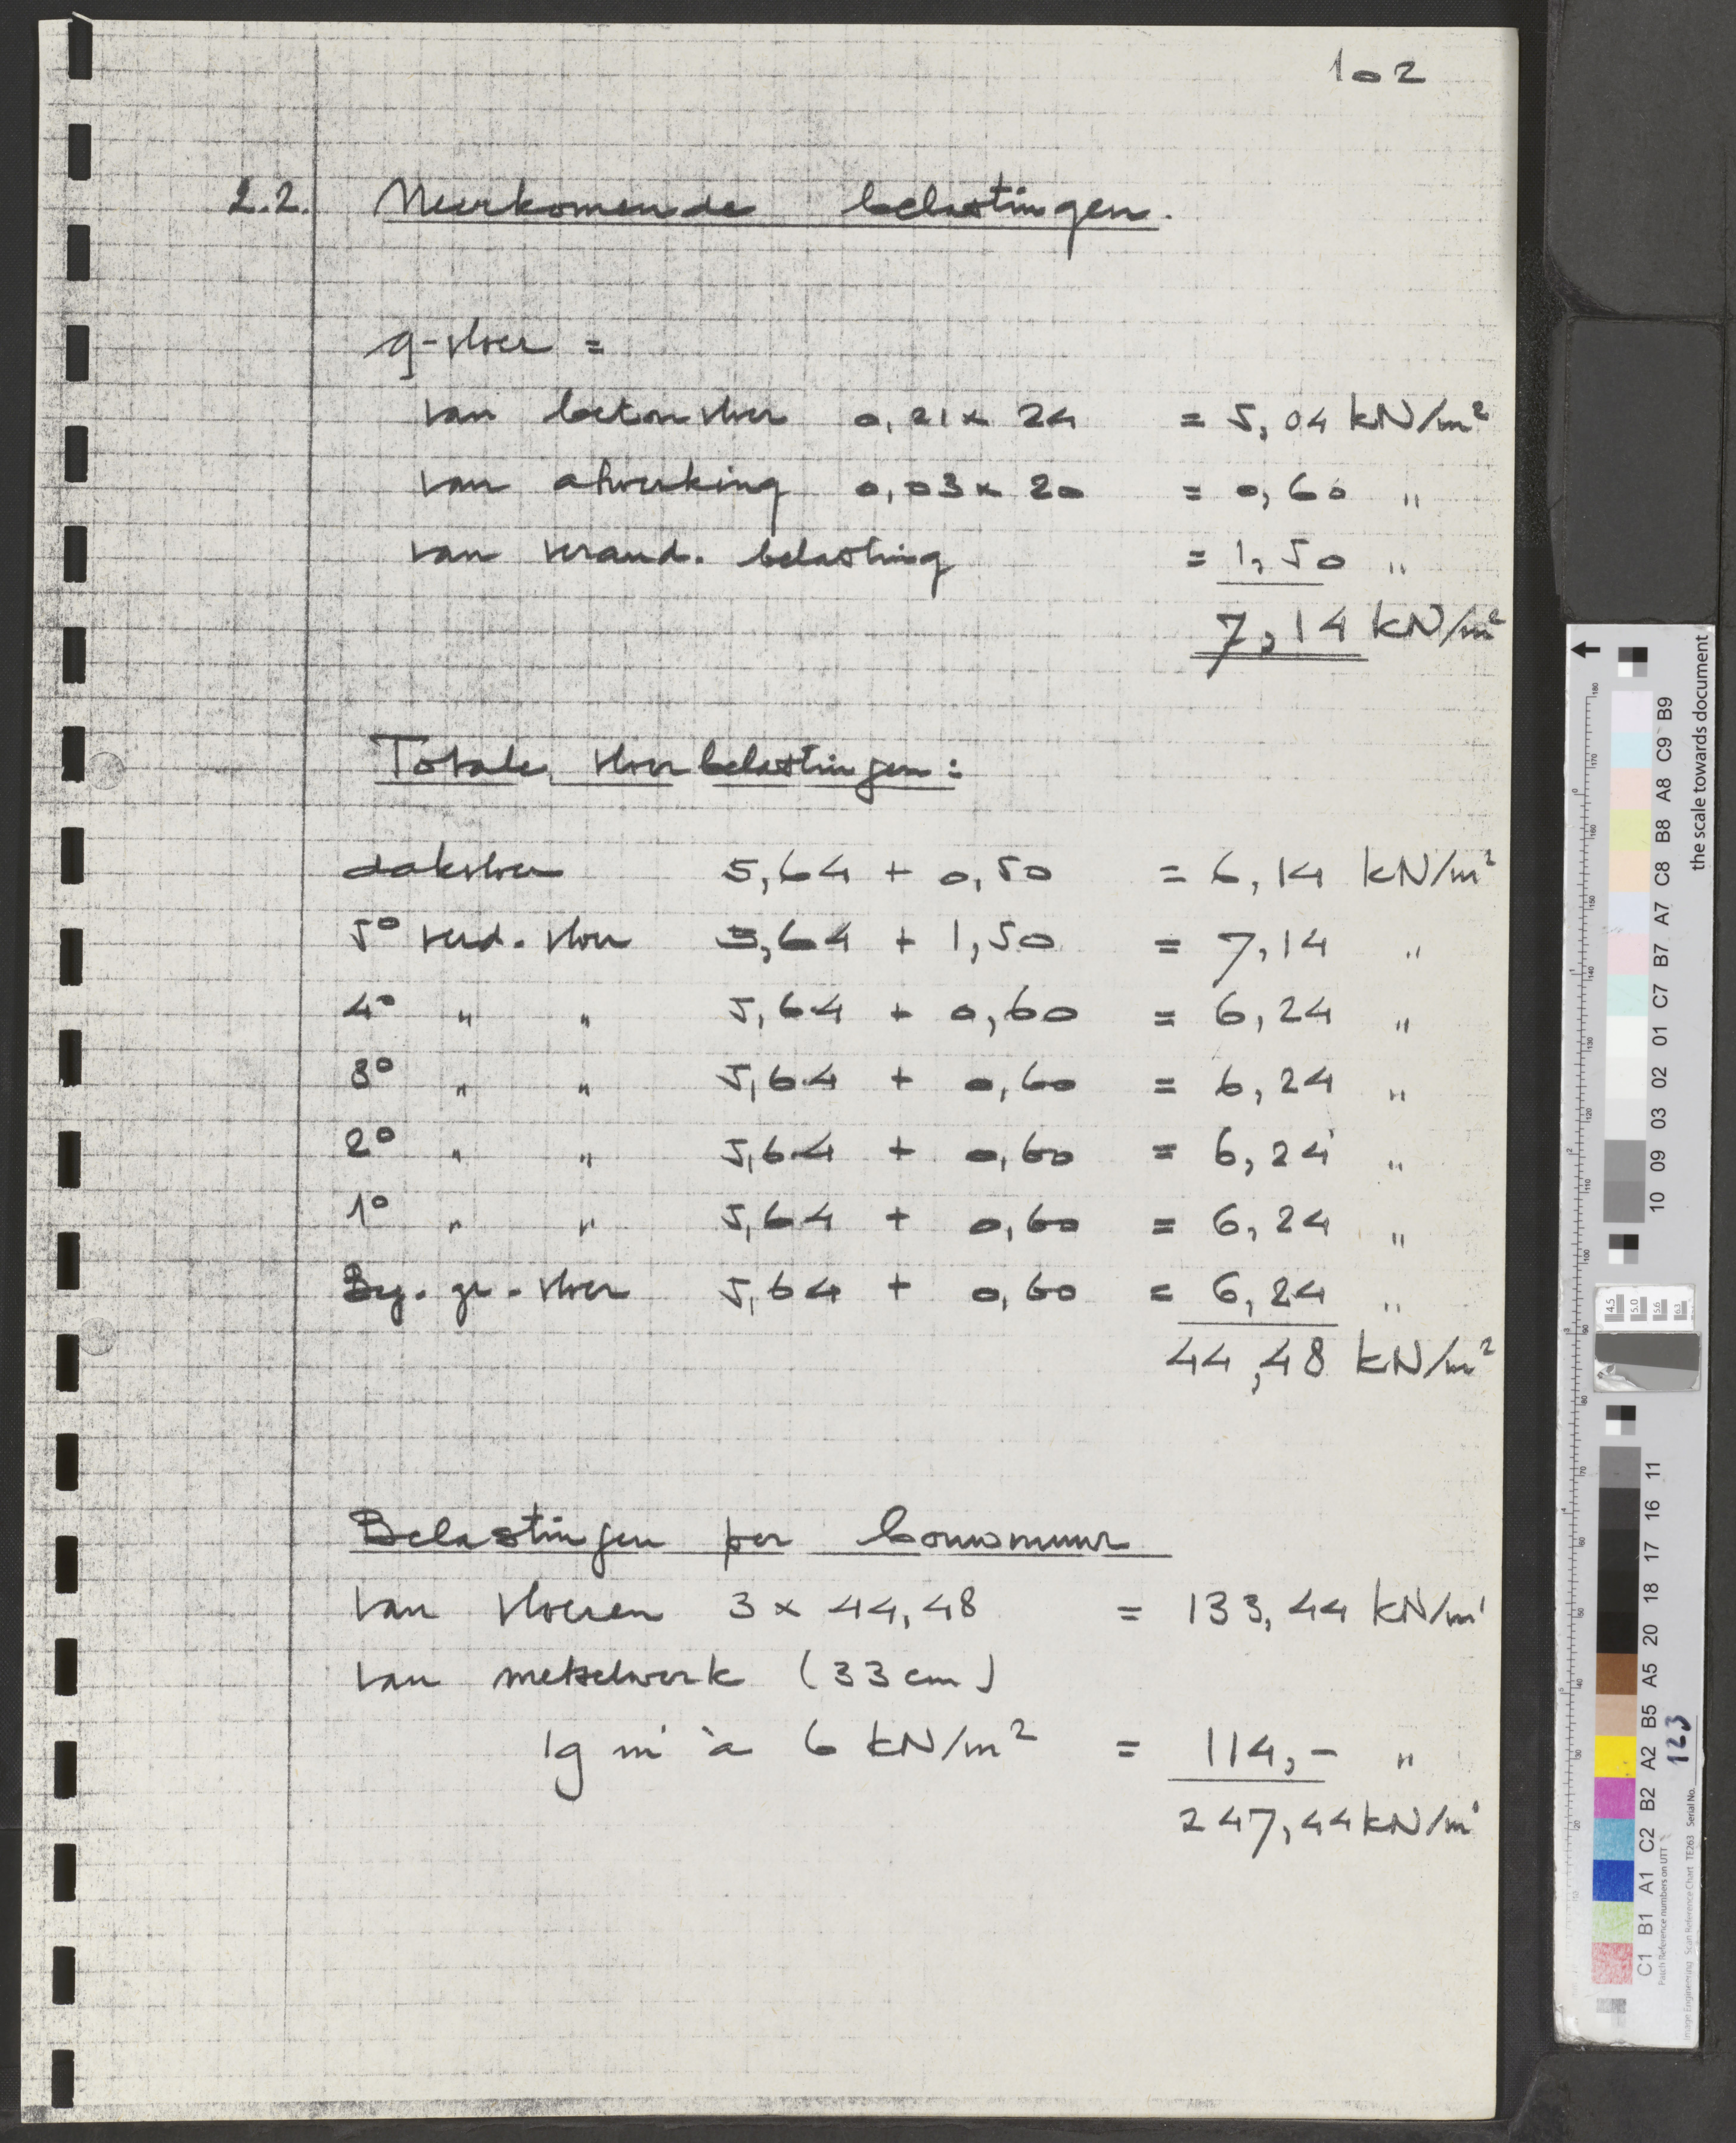 102
2.2. Neerkomende belastingen.
q-vloer =
van betonvloer 0,21 x 24 = 5,04 kN/m²
van afwerking 0,03 x 20 = 0,60 "
van verand. belasting = 1,50 "
7,14 kN/m²
Totale vloerbelastingen:
dakvloer 5,64 + 0,50 = 6,14 kN/m²
5° verd. vloer 5,64 + 1,50 = 7,14 "
4° " " 5,64 + 0,60 = 6,24 "
3° " " 5,64 + 0,60 = 6,24 "
2° " " 5,64 + 0,60 = 6,24 "
1° " " 5,64 + 0,60 = 6,24 "
Beg. gr. vloer 5,64 + 0,60 = 6,24 "
44,48 kN/m²
Belastingen per bouwmuur
van vloeren 3 x 44,48 = 133,44 kN/m'
van metselwerk (33 cm)
19 m' à 6 kN/m² = 114,- "
247,44 kN/m'
the scale towards document
C1 B1 A1 C2 B2 A2 B5 A5 20 18 17 16 11
10 09 03 02 01 C7 B7 A7 C8 B8 A8 C9 B9
Patch Reference numbers on UTT
Image Engineering Scan Reference Chart TE263 Serial No. 123